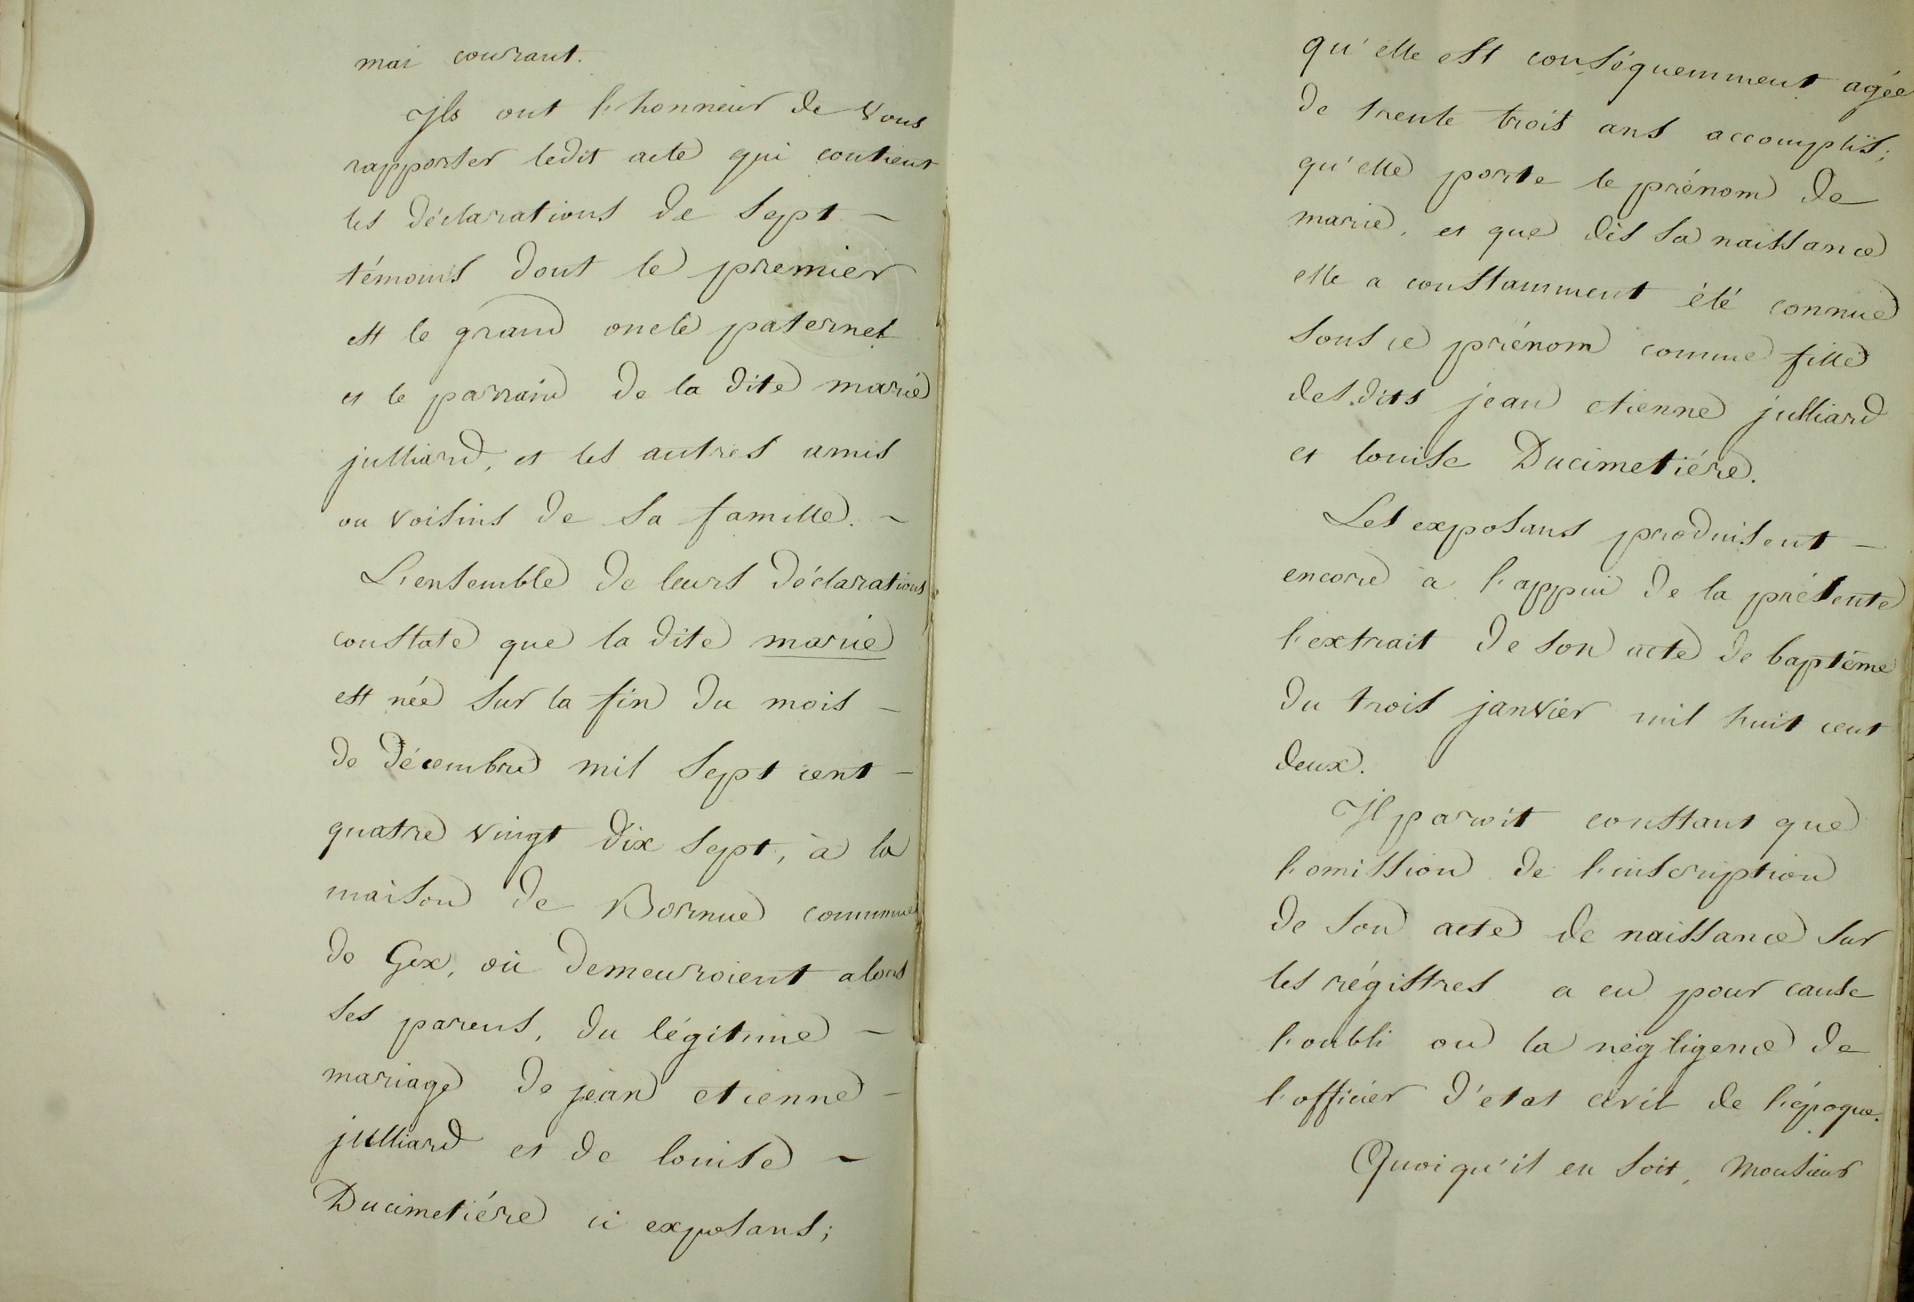 mai courant.
Ils ont l'honneur de vous
rapporter ledit acte qui contient
les déclarations de sept –
témoins dont le premier
est le grand oncle paternel
et le parrain de la dite marie
julliard, et les autres amis
ou voisins de sa famille. –
L'ensemble de leurs déclarations
constate que la dite marie
est née sur la fin du mois –
de décembre mil sept cent –
quatre vingt dix sept, à la
maison de Bornue commune
de Gex, où demeuroient alors
ses parens, du légitime –
mariage de jean etienne –
julliard et de louise –
Ducimetiére ci exposans;
qu'elle est conséquemment agée
de trente trois ans accomplis;
qu'elle porte le prénom de
marie, et que dès sa naissance
elle a constamment été connue
sous ce prénom comme fille
des dits jean etienne julliard
et louise Ducimetiére.
Les exposans produisent –
encore à l'appui de la présente
l'extrait de son acte de baptême
du trois janvier mil huit cent
deux.
Il paroit constant que
l'omission de l'inscription
de son acte de naissance sur
les régistres a eu pour cause
l'oubli ou la négligence de
l'officier d'etat civil de l'époque.
Quoiqu'il en soit, Monsieur